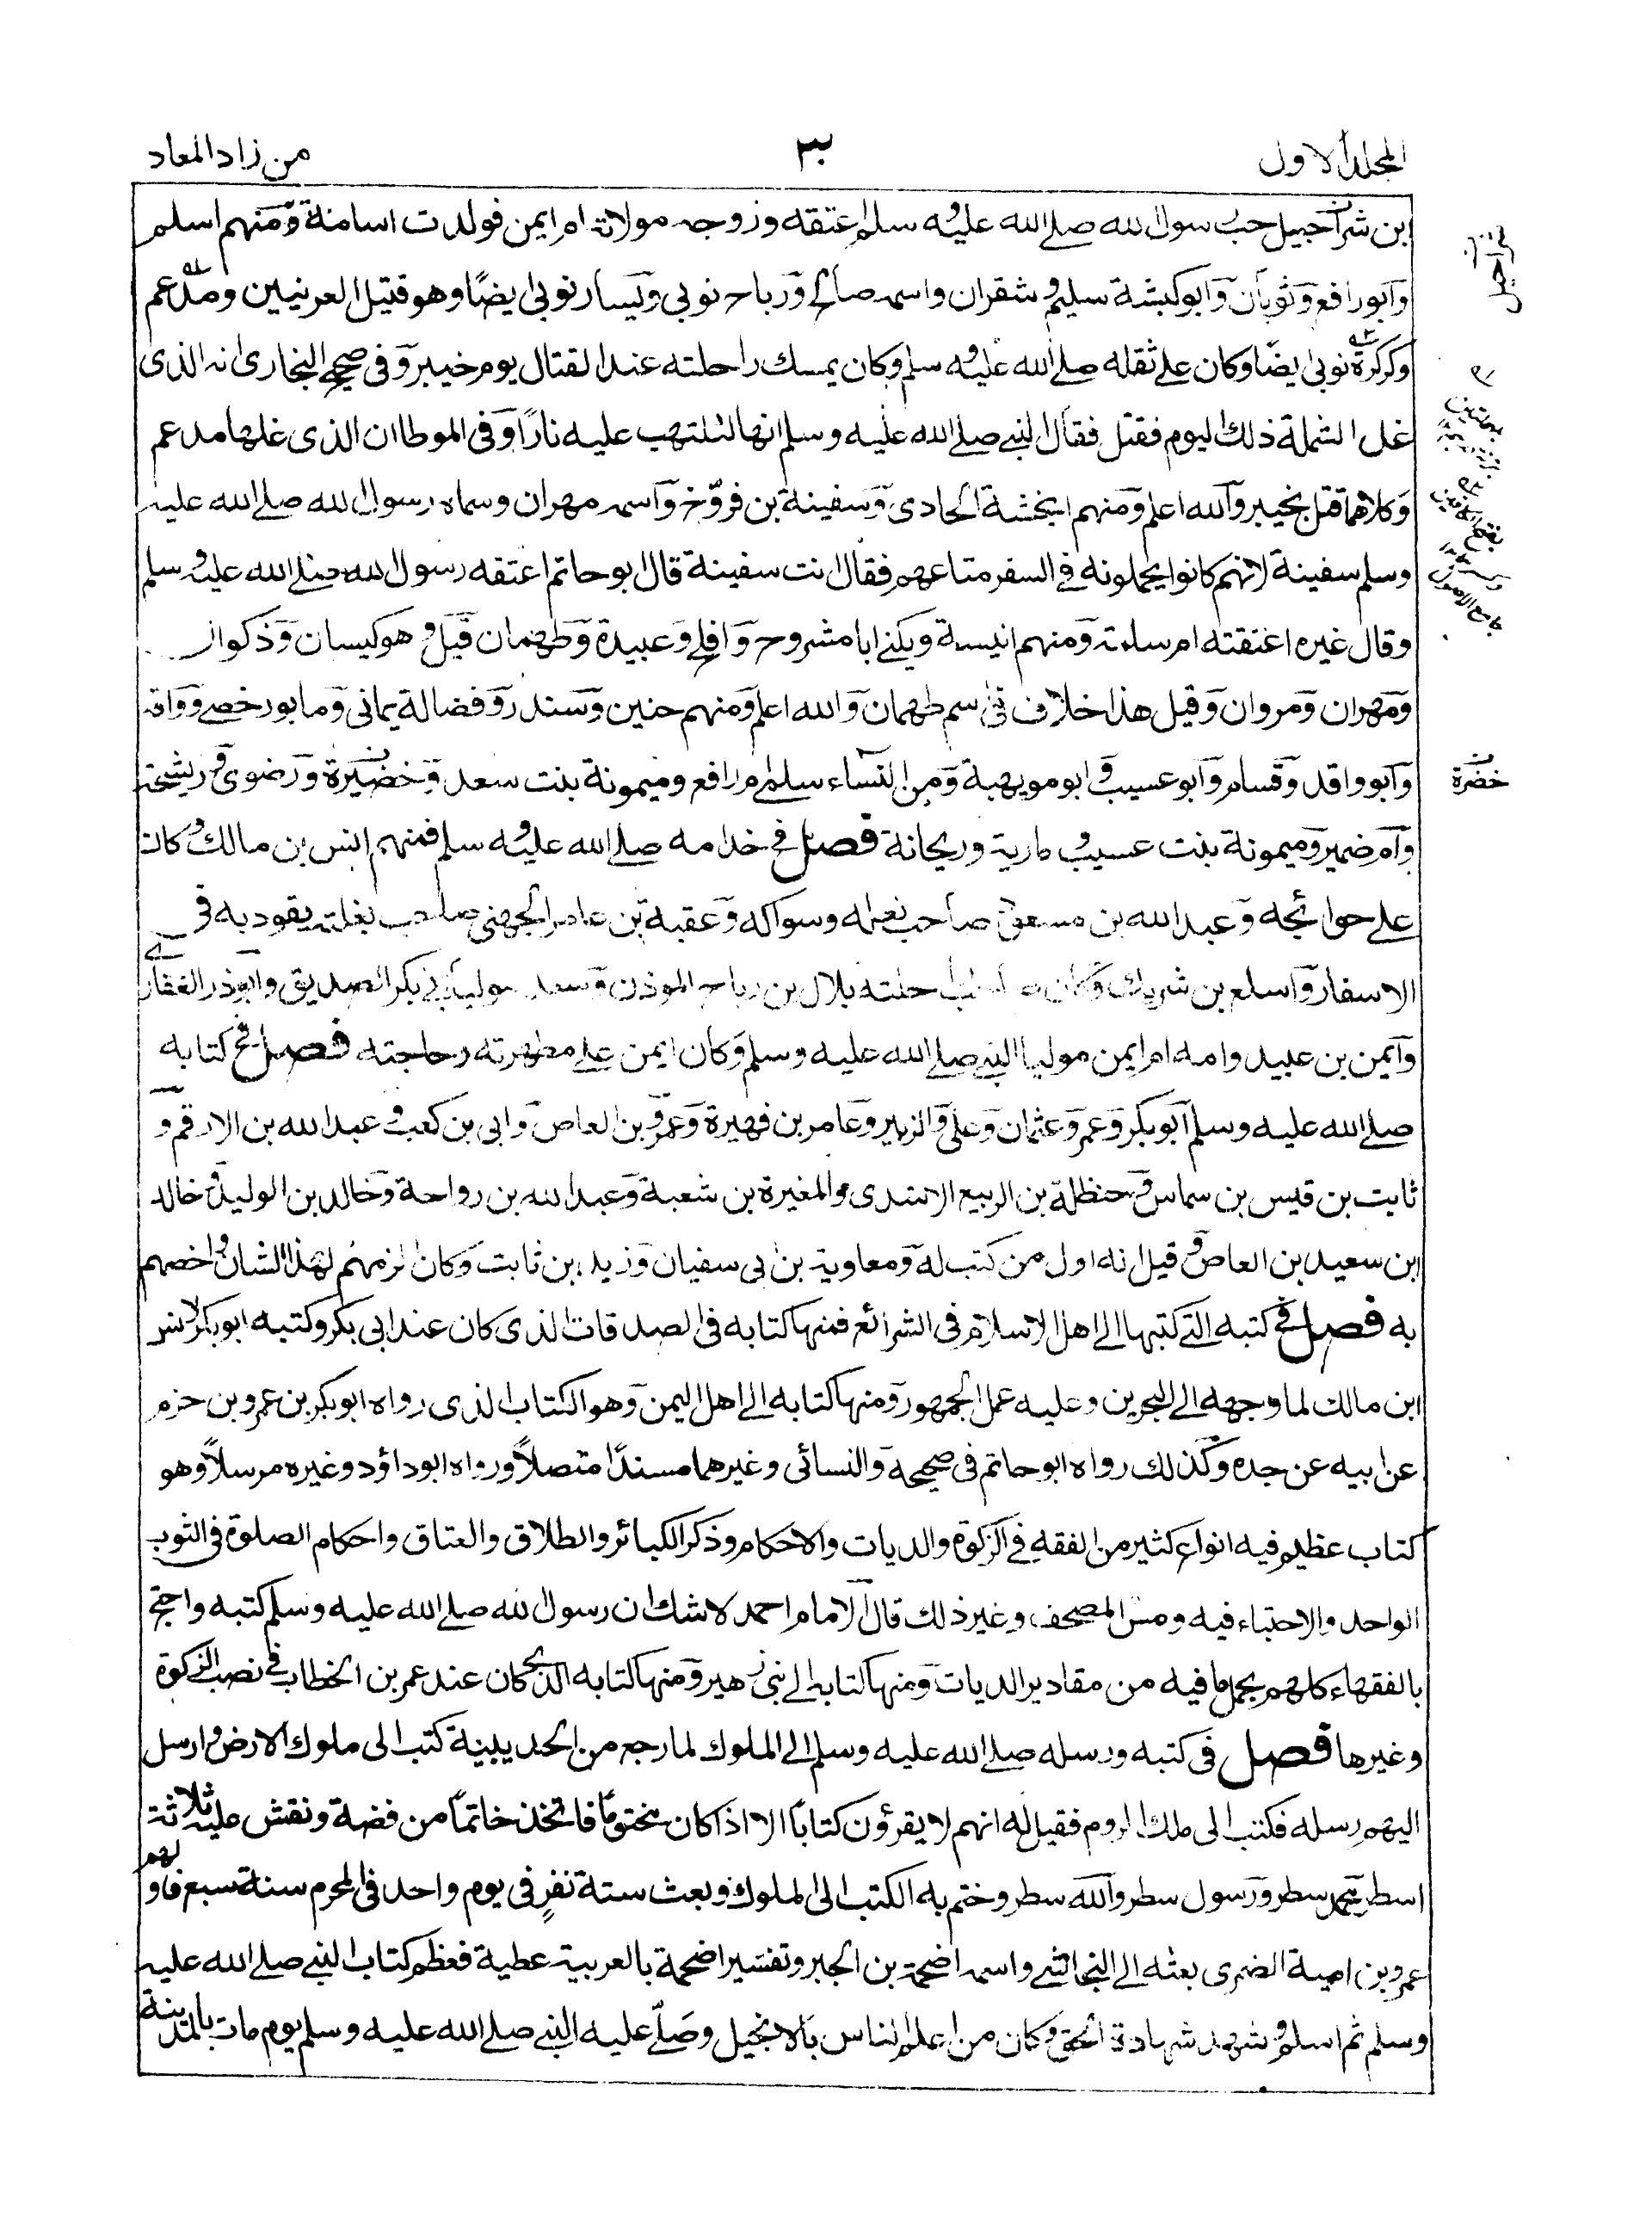 المجلد الاول
٣
من زاد المعاد
ابن شراحبيل حب رسول الله صلے الله عليه وسلم اعتقه وزوجه مولاته ام ايمن فولدت اسامة ومنهم اسلم
وابورافع وثوبان وابوكبشة سليم وشقران واسمه صالح ورباح نوبي ويسار نوبي ايضًا وهو قتيل العرنيين ومدعم
وكركرة نوبي ايضًا وكان علے ثقله صلے الله عليه وسلم وكان يمسك راحلته عند القتال يوم خيبر وفى صحيح البخارى انه الذى
غل الشملة ذلك اليوم فقتل فقال النبي صلے الله عليه وسلم انها لتلتهب عليه نارًا وفى الموطا ان الذى غلها مدعم
وكلاهما قتل بخيبر والله اعلم ومنهم انجشة الحادى وسفينة بن فروخ واسمه مهران وسماه رسول الله صلے الله عليه
وسلم سفينة لانهم كانوا يحملونه فى السفر متاعهم فقال انت سفينة قال ابوحاتم اعتقه رسول الله صلے الله عليه وسلم
وقال غيره اعتقته ام سلمة ومنهم انيسة ويكنے ابا مشروح وافلح وعبيدة وطهمان قيل وهو كيسان وذكوان
ومهران ومروان وقيل هذا خلاف فى اسم طهمان والله اعلم ومنهم حنين وسندر وفضالة يمانى ومابور خصے وواقد
وابو واقد وقسام وابوعسيب وابومويهبة ومن النساء سلمے ام رافع وميمونة بنت سعد وخضيرة ورضوى وريشحة
وام ضمير وميمونة بنت عسيب ومارية وريحانة فصل فى خدامه صلے الله عليه وسلم فمنهم انس بن مالك وكان
علے حوائجه وعبد الله بن مسعود صاحب نعله وسواكه وعقبة بن عامر الجهنى صاحب بغلته يقود به فى
الاسفار واسلع بن شريك وكان صاحب راحلته بلال بن رباح الموذن وسعد موليا ابى بكر الصديق وابوذر الغفارى
وايمن بن عبيد وامه ام ايمن موليا النبي صلے الله عليه وسلم وكان ايمن علے مطهرته وحاجته فصل فى كتابه
صلے الله عليه وسلم ابوبكر وعمر وعثمان وعلى والزبير وعامر بن فهيرة وعمرو بن العاص وابى بن كعب وعبد الله بن الارقم و
ثابت بن قيس بن سماس وحنظلة بن الربيع الاسدى والمغيرة بن شعبة وعبد الله بن رواحة وخالد بن الوليد وخالد
ابن سعيد بن العاص وقيل انه اول من كتب له ومعاوية بن ابى سفيان وزيد بن ثابت وكان الزمهم لهذا الشان واخصهم
به فصل فى كتبه التے كتبها الے اهل الاسلام فى الشرائع فمنها كتابه فى الصدقات الذى كان عند ابى بكر وكتبه ابوبكر لانس
ابن مالك لما وجهه الے البحرين وعليه عمل الجمهور ومنها كتابه الے اهل اليمن وهو الكتاب الذى رواه ابوبكر بن عمرو بن حزم
عن ابيه عن جده وكذلك رواه ابوحاتم فى صحيحه والنسائى وغيرهما مسندًا متصلًا ورواه ابوداؤد وغيره مرسلًا وهو
كتاب عظيم فيه انواع كثير من الفقه فى الزكوة والديات والاحكام وذكر الكبائر والطلاق والعتاق واحكام الصلوة فى الثوب
الواحد والاحتباء فيه ومس المصحف وغير ذلك قال الامام احمد لا شك ان رسول الله صلے الله عليه وسلم كتبه واحتج
بالفقهاء كلهم بجمل ما فيه من مقادير الديات ومنها كتابه الے بنى زهير ومنها كتابه الذى كان عند عمر بن الخطاب فى نصب الزكوة
وغيرها فصل فى كتبه ورسله صلے الله عليه وسلم الے الملوك لما رجع من الحديبية كتب الى ملوك الارض وارسل
اليهم رسله فكتب الى ملك الروم فقيل له انهم لا يقرؤن كتابًا الا اذا كان مختومًا فاتخذ خاتمًا من فضة ونقش عليه ثلاثة
اسطر محمد سطر ورسول سطر والله سطر وختم به الكتب الى الملوك وبعث ستة نفر فى يوم واحد فى المحرم سنة سبع فاولهم
عمرو بن امية الضمرى بعثه الے النجاشے واسمه اضحمة بن الجبر وتفسير اضحمة بالعربية عطية فعظم كتاب النبي صلے الله عليه
وسلم ثم اسلم وشهد شهادة الحق وكان من اعلم الناس بالانجيل وصلّے عليه النبي صلے الله عليه وسلم يوم مات بالمدينة
شراحيل
خضرة